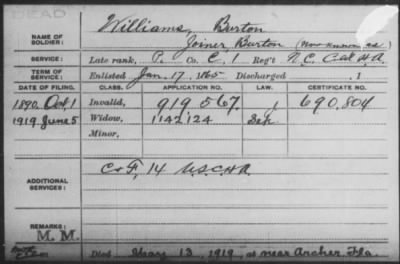 DEAD
NAME OF SOLDIER: Williams, Burton
Joiner Burton (Now known as)
SERVICE: Late rank, P. Co. E, 1 Reg't N.C. Cold H.A.
TERM OF SERVICE: Enlisted Jan. 17, 1865 Discharged , 1
DATE OF FILING. CLASS. APPLICATION NO. LAW. CERTIFICATE NO.
1890, Oct 1 Invalid, 919,567 690,804
1919, June 5 Widow, 1142124
Minor,
ADDITIONAL SERVICES: Co F, 14 U.S.C.H.A.
REMARKS: M. M.
Died May 13, 1919, at near Archer, Fla.